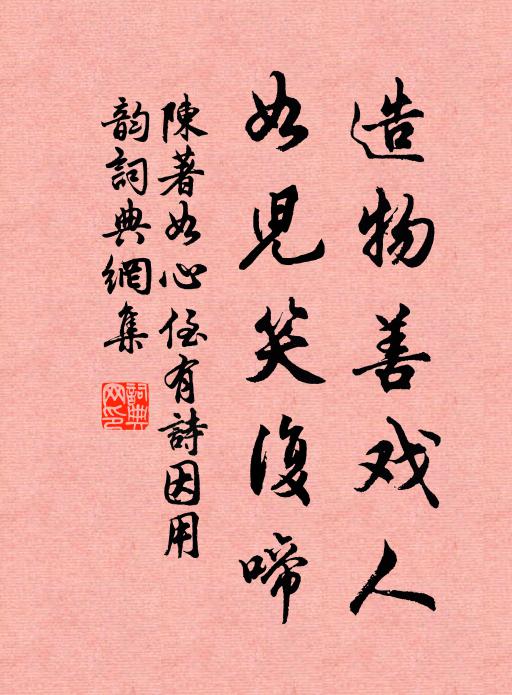 造物善戏人
如兒笑復啼
陳著如心侄有詩因用
韵詞典網集
詞典
网印